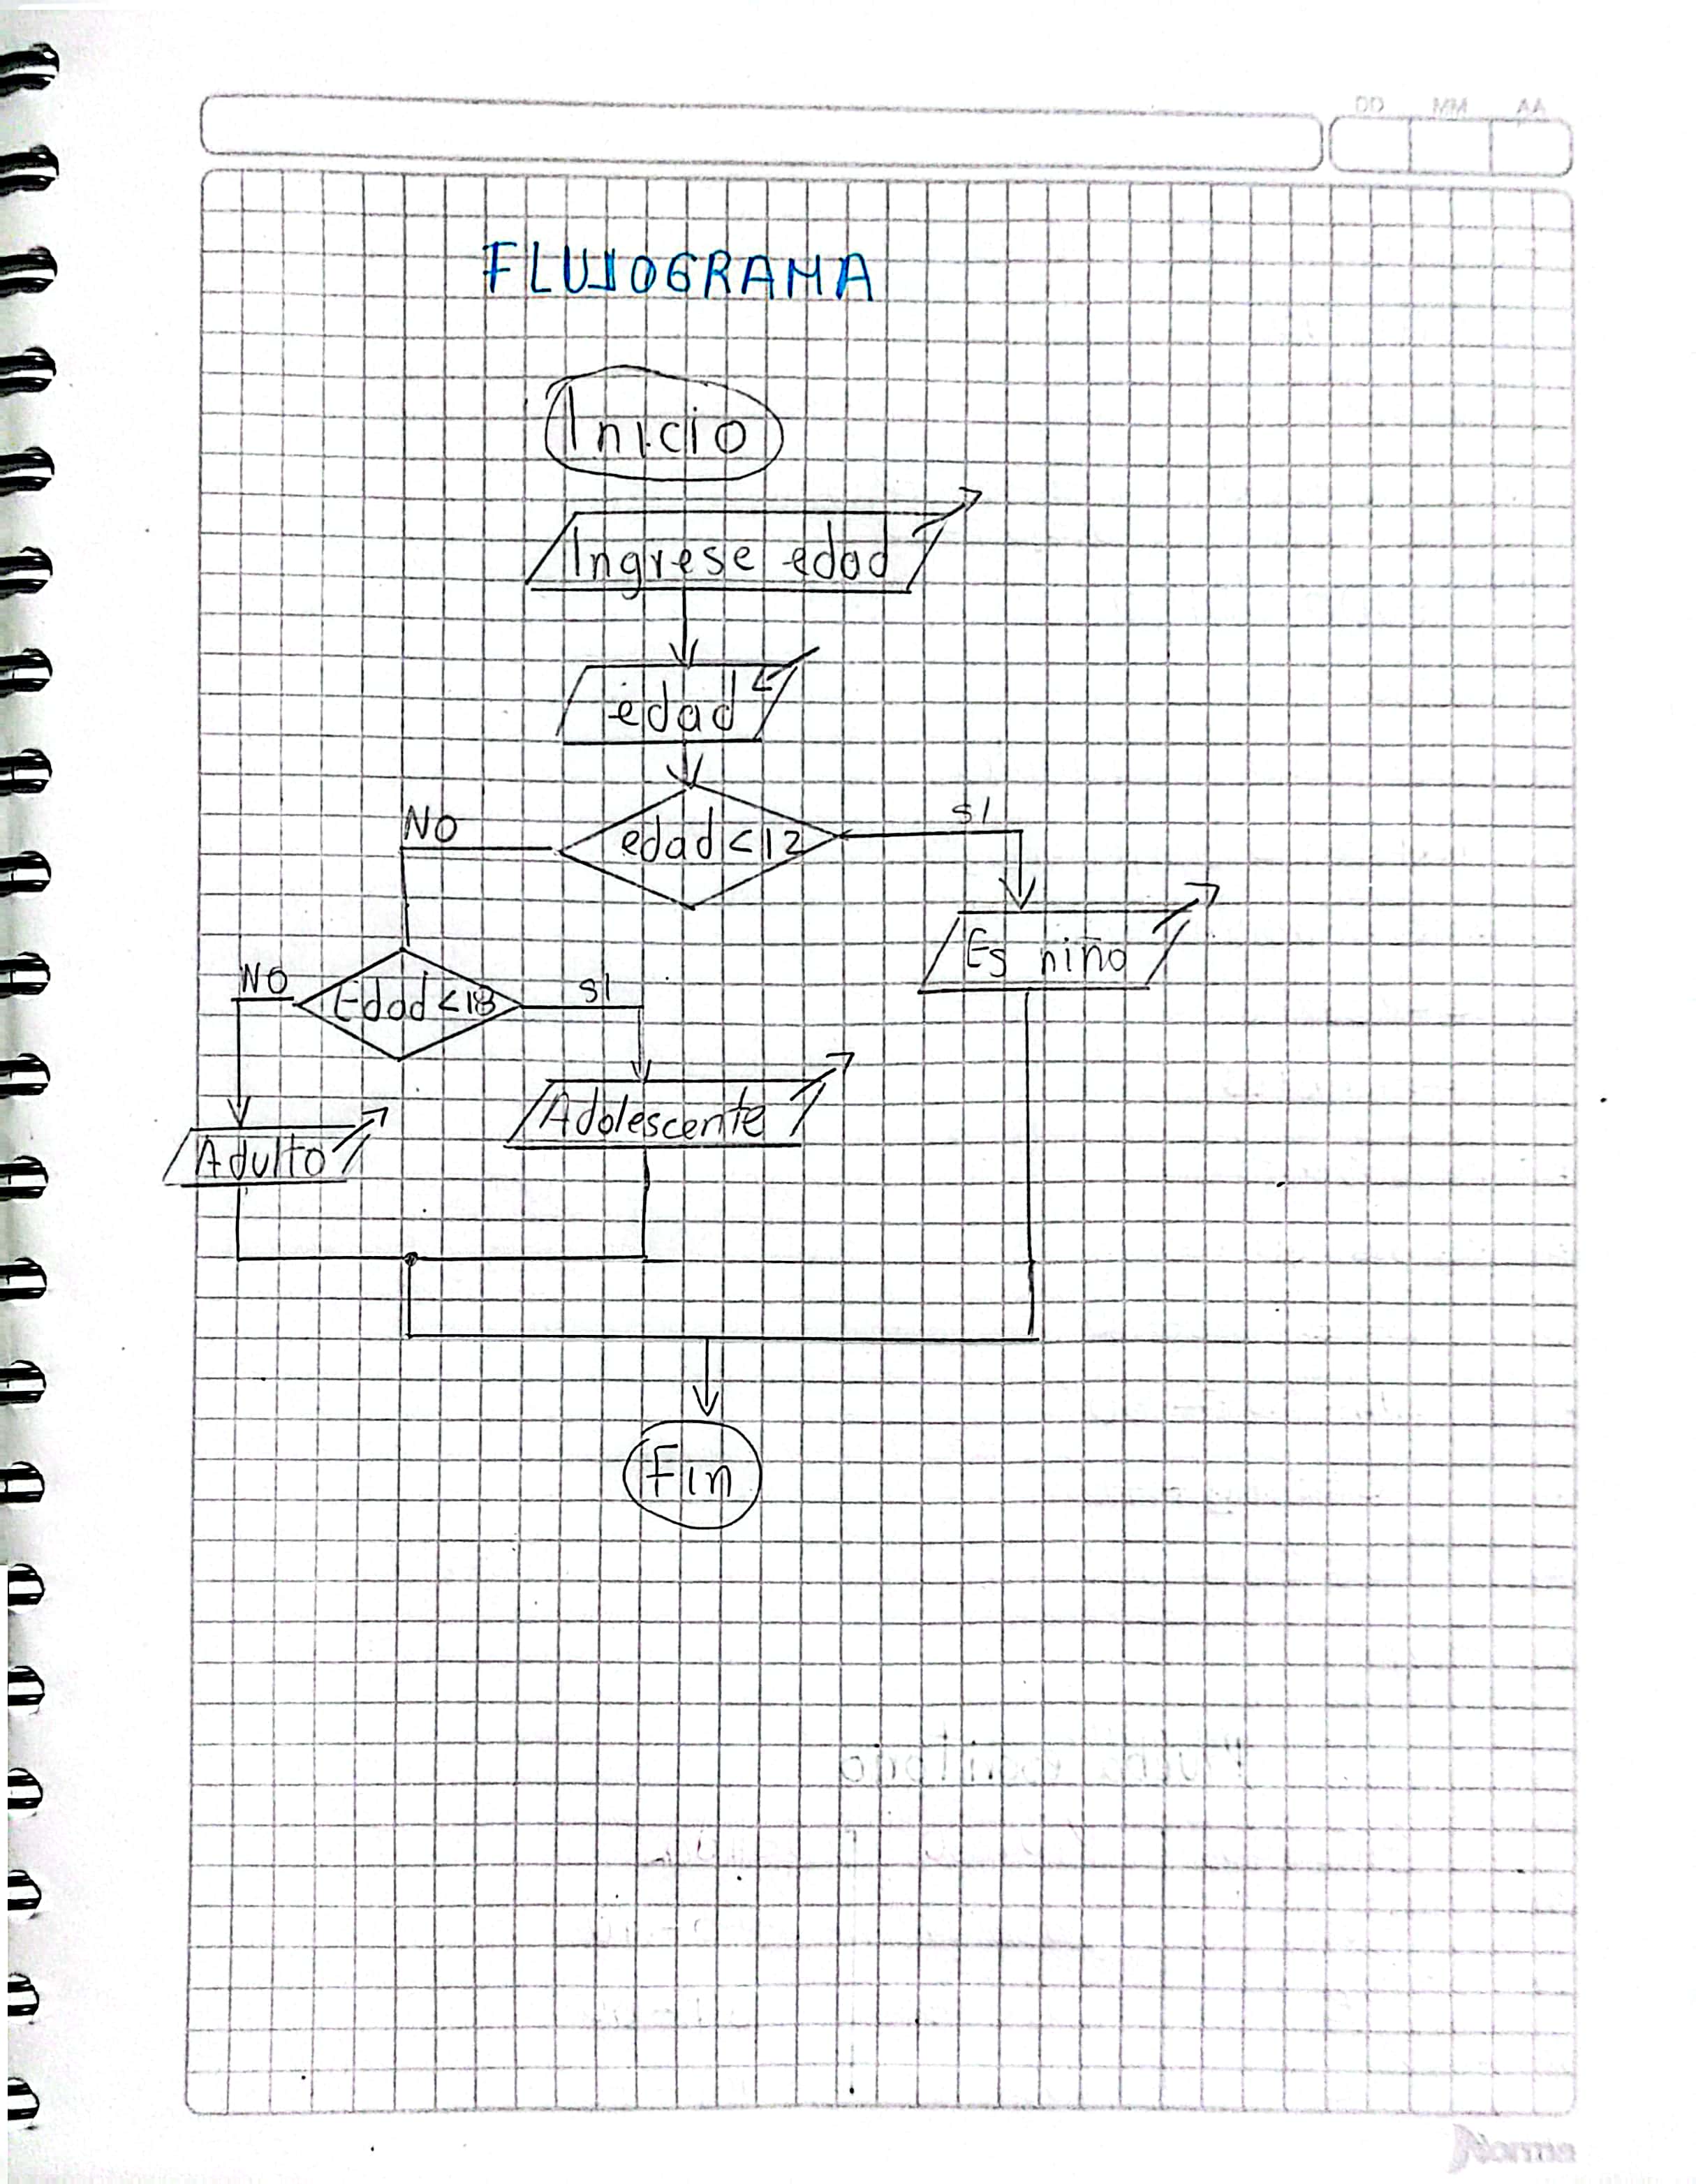 DD MM AA
FLUJOGRAMA
Inicio
Ingrese edad
edad
NO
edad < 12
SI
Es niño
NO
Edad < 18
SI
Adolescente
Adulto
Fin
Norma